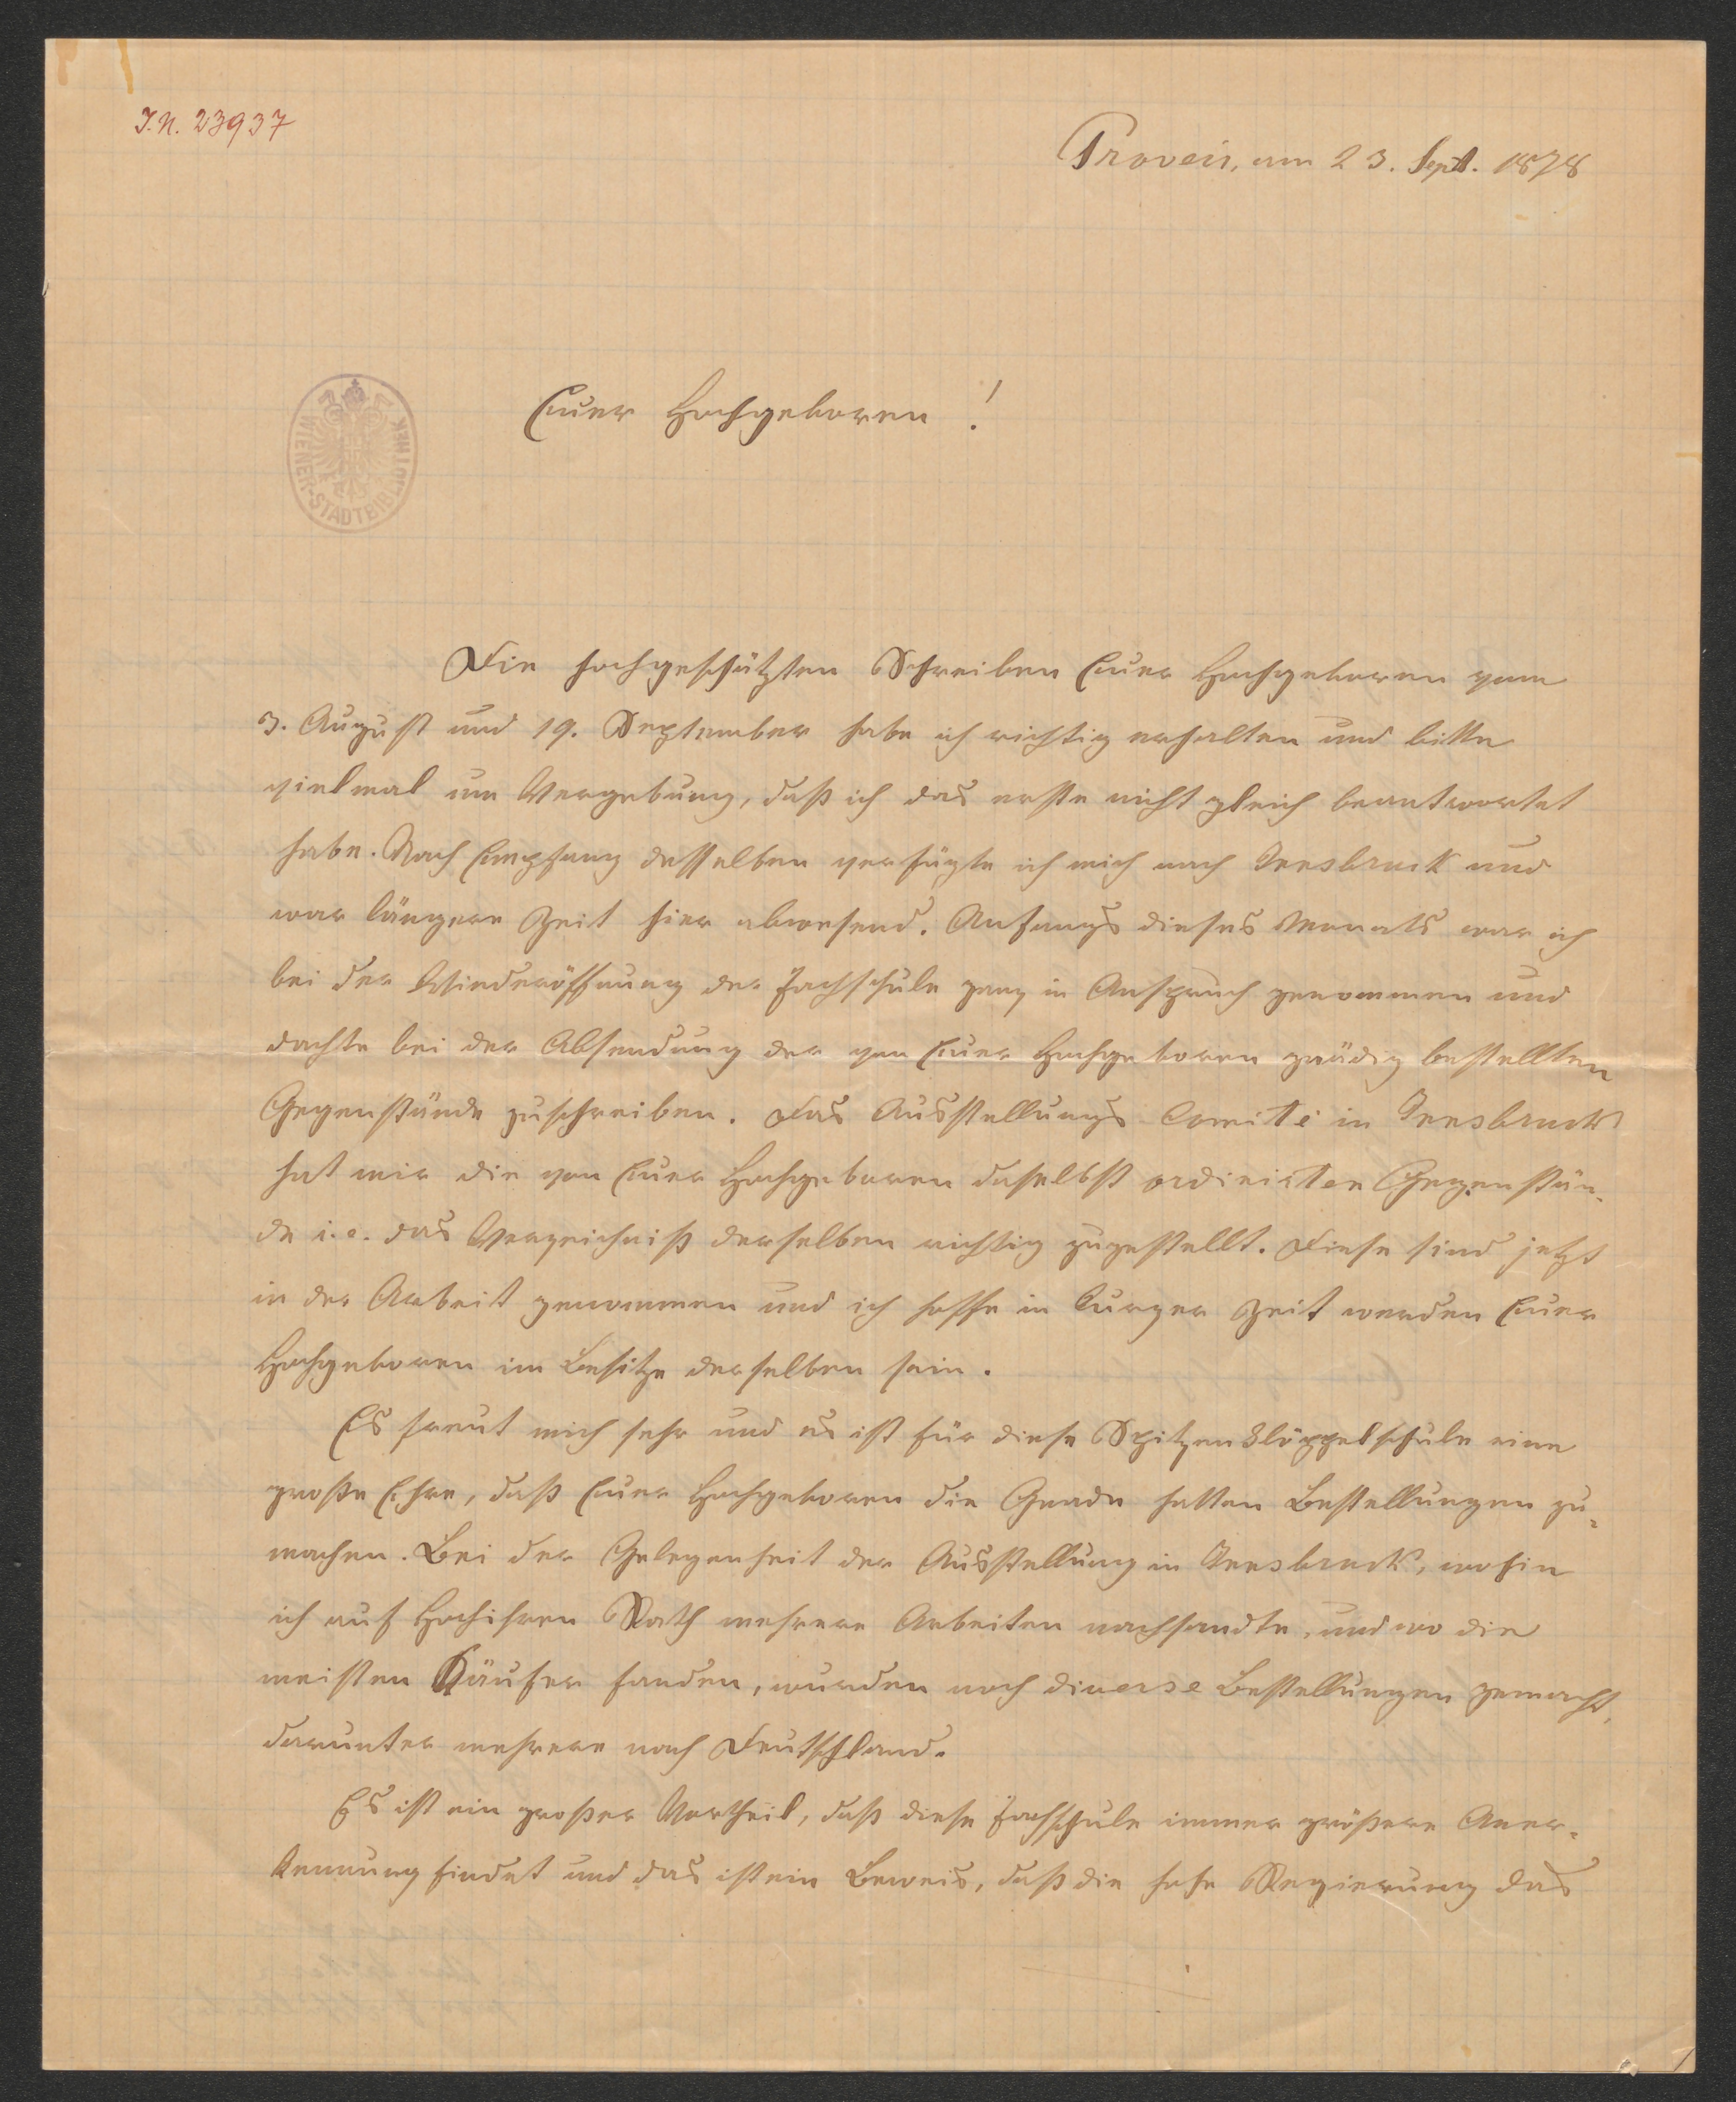 I.N. 23937
Proveis, am 23. Sept. 1878
WIENER-STADTBIBLIOTHEK
Euer Hochgeboren!
Die hochgeschätzten Schreiben Euer Hochgeboren vom
3. August und 19. September habe ich richtig erhalten und bitte
vielmal um Vergebung, daß ich das erste nicht gleich beantwortet
habe. Nach Empfang desselben verfügte ich mich nach Innsbruck und
war längere Zeit hier abwesend. Anfangs dieses Monats war ich
bei der Wiederöffnung der Fachschule ganz in Anspruch genommen und
dachte bei der Absendung der von Euer Hochgeboren gnädig bestellten
Gegenstände zuschreiben. Das Ausstellungs Comité in Innsbruck
hat mir die von Euer Hochgeboren daselbst ordinirten Gegenstän-
de i.e. das Verzeichniß derselben richtig zugestellt. Diese sind jetzt
in der Arbeit genommen und ich hoffe in kurzer Zeit werden Euer
Hochgeboren im Besitze derselben sein.
Es freut mich sehr und es ist für diese Spitzenklöppelschule eine
große Ehre, daß Euer Hochgeboren die Gnade hatten Bestellungen zu-
machen. Bei der Gelegenheit der Ausstellung in Innsbruck, wohin
ich auf Hochihren Rath mehrere Arbeiten nachsandte, und wo die
meisten Käufer fanden, wurden noch diverse Bestellungen gemacht,
darunter mehrere nach Deutschland.
Es ist ein großer Vortheil, daß diese Fachschule immer größere Aner-
kennung findet und das ist ein Beweis, daß die hohe Regierung das
1